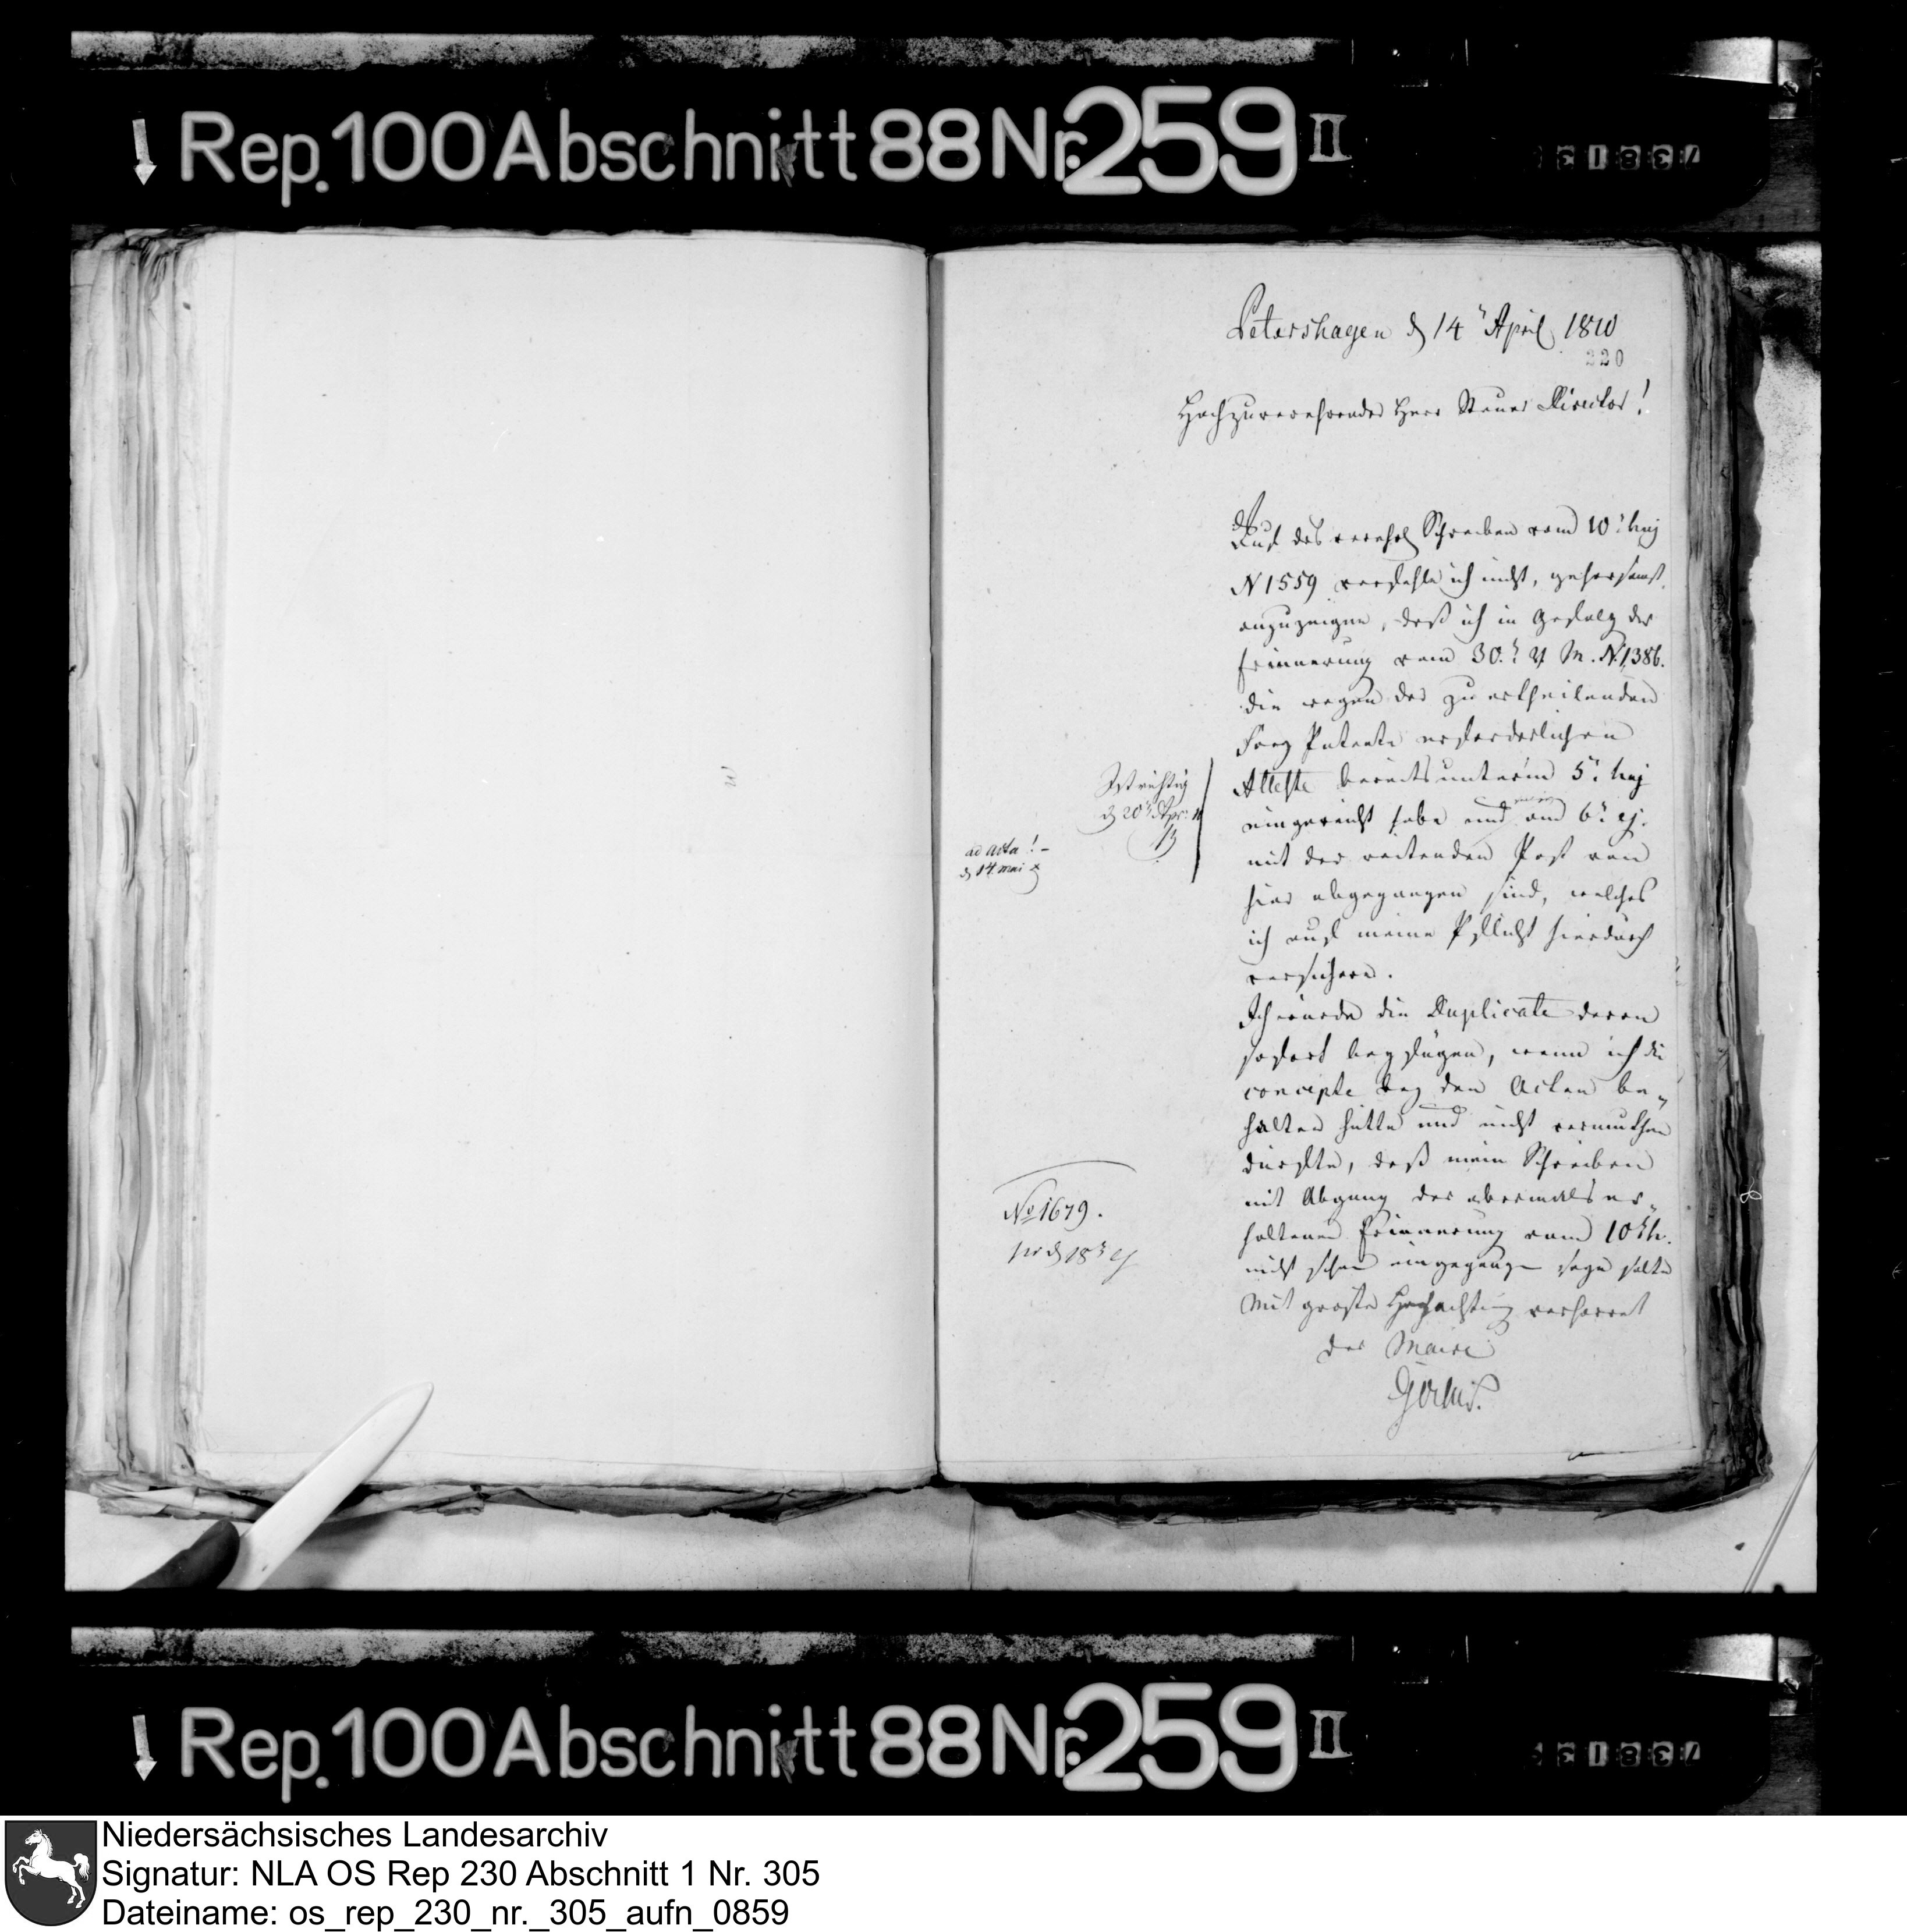 Rep.100 Abschnitt 88 Nr. 259 II
Petershagen d 14 April 1810
220
Hochzuverehrender Herr Steuer Director!
Auf das verehrl Schreiben vom 10t huj
N 1559 verfehle ich nicht, gehorsamst
anzuzeigen, daß ich in Gefolg der
Erinnerung vom 30.t M. N. 1386.
die wegen der zu ertheilenden
Patente erforderlichen
Atteste bereits unterm 5t huj
eingereicht habe und am 6t ej.
mit der reitenden Post von
hier abgegangen sind, welches
ich auf meine Pflicht hierdurch
versichere.
Ich würde die Duplicate davon
sofort beyfügen, wenn ich die
concepte bey den Acten be-
halten hätte und nicht vermuthen
dürfte, daß mein Schreiben
mit Abgang der abermals er-
haltenen Erinnerung vom 10t h.
nicht schon eingegangen seyn sollte
Mit großer Hochachtung verharret
der Maire
Ist richtig
d 20t Apr:
ad acta! -
d 14 mai
No 1679.
pr d 18t ej
Rep.100 Abschnitt 88 Nr. 259 II
Niedersächsisches Landesarchiv
Signatur: NLA OS Rep 230 Abschnitt 1 Nr. 305
Dateiname: os_rep_230_nr._305_aufn_0859